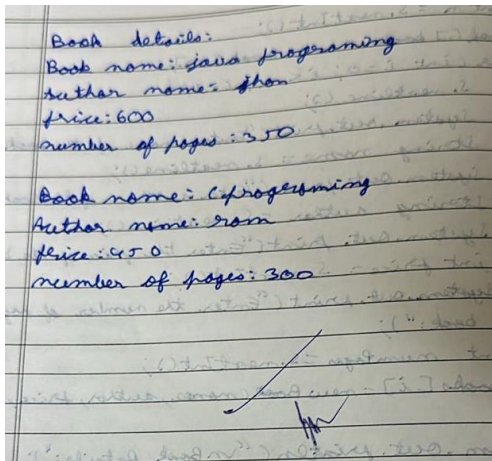 Book details:
Book name: java programing
Author name: jhon
price: 600
number of pages: 350
Book name: C programing
Author name: ram
price: 450
number of pages: 300